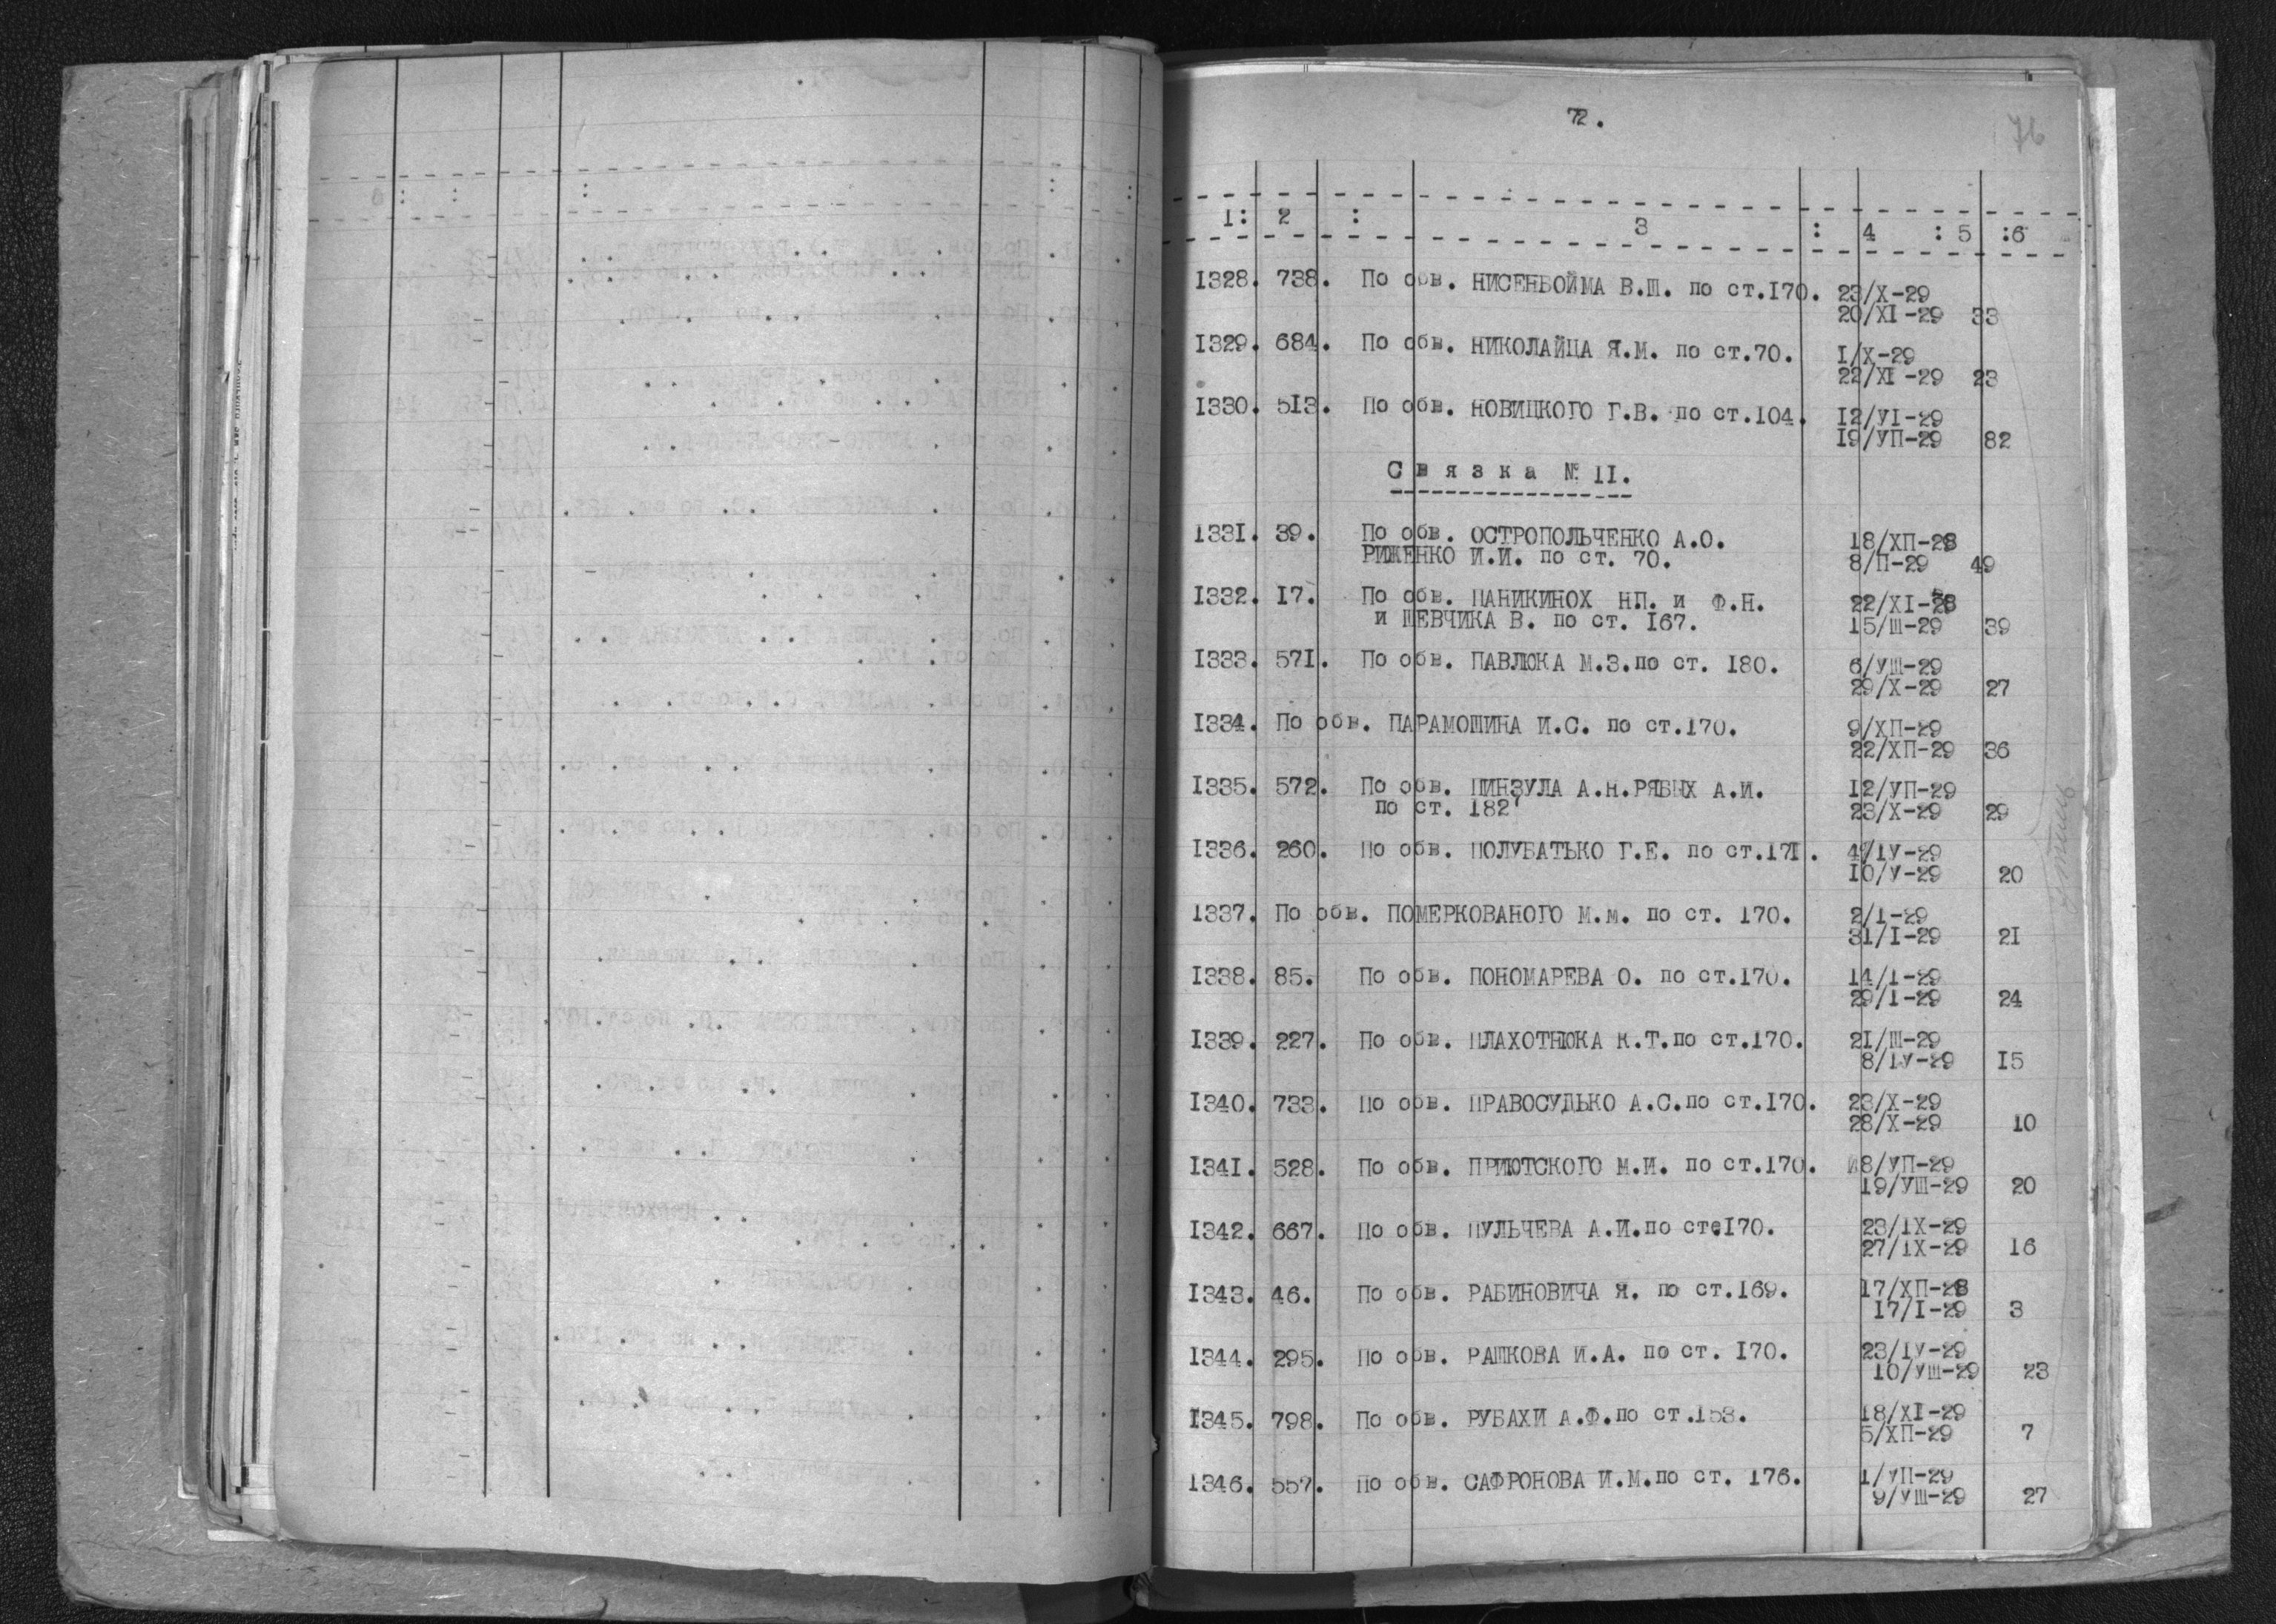 72.
76
1: 2 : 3 : 4 : 5 :6
1328. 738. По обв. НИСЕНБОЙМА В.Ш. по ст.170. 23/Х-29
20/XI-29 33
1329. 684. По обв. НИКОЛАЙЦА Я.М. по ст.70. I/X-29
22/XI-29 23
1330. 513. По обв. НОВИЦКОГО Г.В. по ст.104. 12/УI-29
19/УП-29 82
Связка № 11.
1331. 39. По обв. ОСТРОПОЛЬЧЕНКО А.О. 18/ХП-28
РИЖЕНКО И.И. по ст. 70. 8/П-29 49
1332. 17. По обв. ПАНИКИНОХ НП. и Ф.Н. 22/XI-28
и ШЕВЧИКА В. по ст. 167. 15/Ш-29 39
1333. 571. По обв. ПАВЛЮКА М.З.по ст. 180. 6/УШ-29
29/Х-29 27
1334. По обв. ПАРАМОШИНА И.С. по ст.170. 9/ХП-29
22/ХП-29 36
1335. 572. По обв. ПИНЗУЛА А.Н.РЯБЫХ А.И. 12/УП-29
по ст. 182 23/Х-29 29
1336. 260. По обв. ПОЛУБАТЬКО Г.Е. по ст.171. 4/IУ-29
10/У-29 20
1337. По обв. ПОМЕРКОВАНОГО М.м. по ст. 170. 2/I-29
31/I-29 21
1338. 85. По обв. ПОНОМАРЕВА О. по ст.170. 14/I-29
29/I-29 24
1339. 227. По обв. ПЛАХОТНЮКА К.Т.по ст.170. 21/Ш-29
8/IУ-29 15
1340. 733. По обв. ПРАВОСУДЬКО А.С.по ст.170. 23/Х-29
28/Х-29 10
1341. 528. По обв. ПРИЮТСКОГО М.И. по ст.170. 8/УП-29
19/УШ-29 20
1342. 667. По обв. ПУЛЬЧЕВА А.И.по сте170. 23/IX-29
27/IX-29 16
1343. 46. По обв. РАБИНОВИЧА Я. по ст.169. 17/ХП-28
17/I-29 3
1344. 295. По обв. РАШКОВА И.А. по ст. 170. 23/IУ-29
10/УШ-29 23
1345. 798. По обв. РУБАХИ А.Ф.по ст.153. 18/XI-29
5/ХП-29 7
1346. 557. По обв. САФРОНОВА И.М.по ст. 176. 1/УП-29
9/УШ-29 27